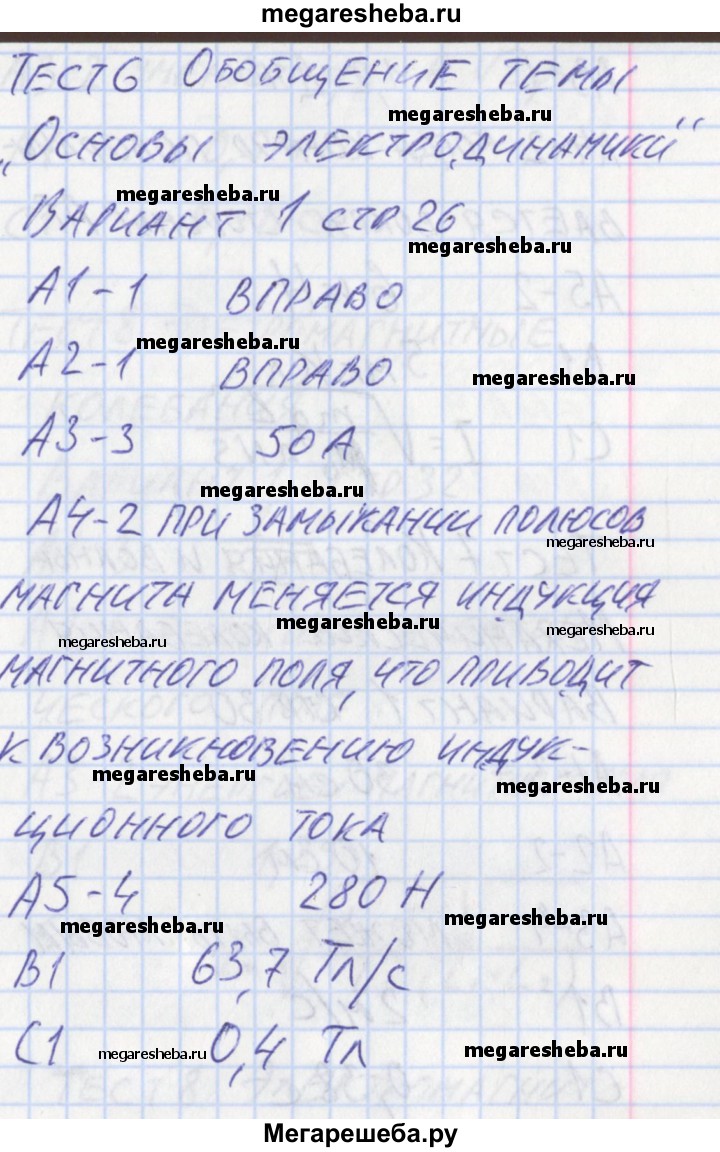 megaresheba.ru
ТЕСТ 6 ОБОБЩЕНИЕ ТЕМЫ
megaresheba.ru
„ОСНОВЫ ЭЛЕКТРОДИНАМИКИ“
megaresheba.ru
ВАРИАНТ 1 СТР 26
megaresheba.ru
А1-1 ВПРАВО
megaresheba.ru
А2-1 ВПРАВО
megaresheba.ru
А3-3 50А
megaresheba.ru
А4-2 ПРИ ЗАМЫКАНИИ ПОЛЮСОВ
megaresheba.ru
МАГНИТА МЕНЯЕТСЯ ИНДУКЦИЯ
megaresheba.ru
megaresheba.ru
megaresheba.ru
МАГНИТНОГО ПОЛЯ, ЧТО ПРИВОДИТ
К ВОЗНИКНОВЕНИЮ ИНДУК-
megaresheba.ru
megaresheba.ru
ЦИОННОГО ТОКА
А5-4 280 Н
megaresheba.ru
megaresheba.ru
В1 63,7 Тл/с
С1 0,4 Тл
megaresheba.ru
megaresheba.ru
Мегарешеба.ру